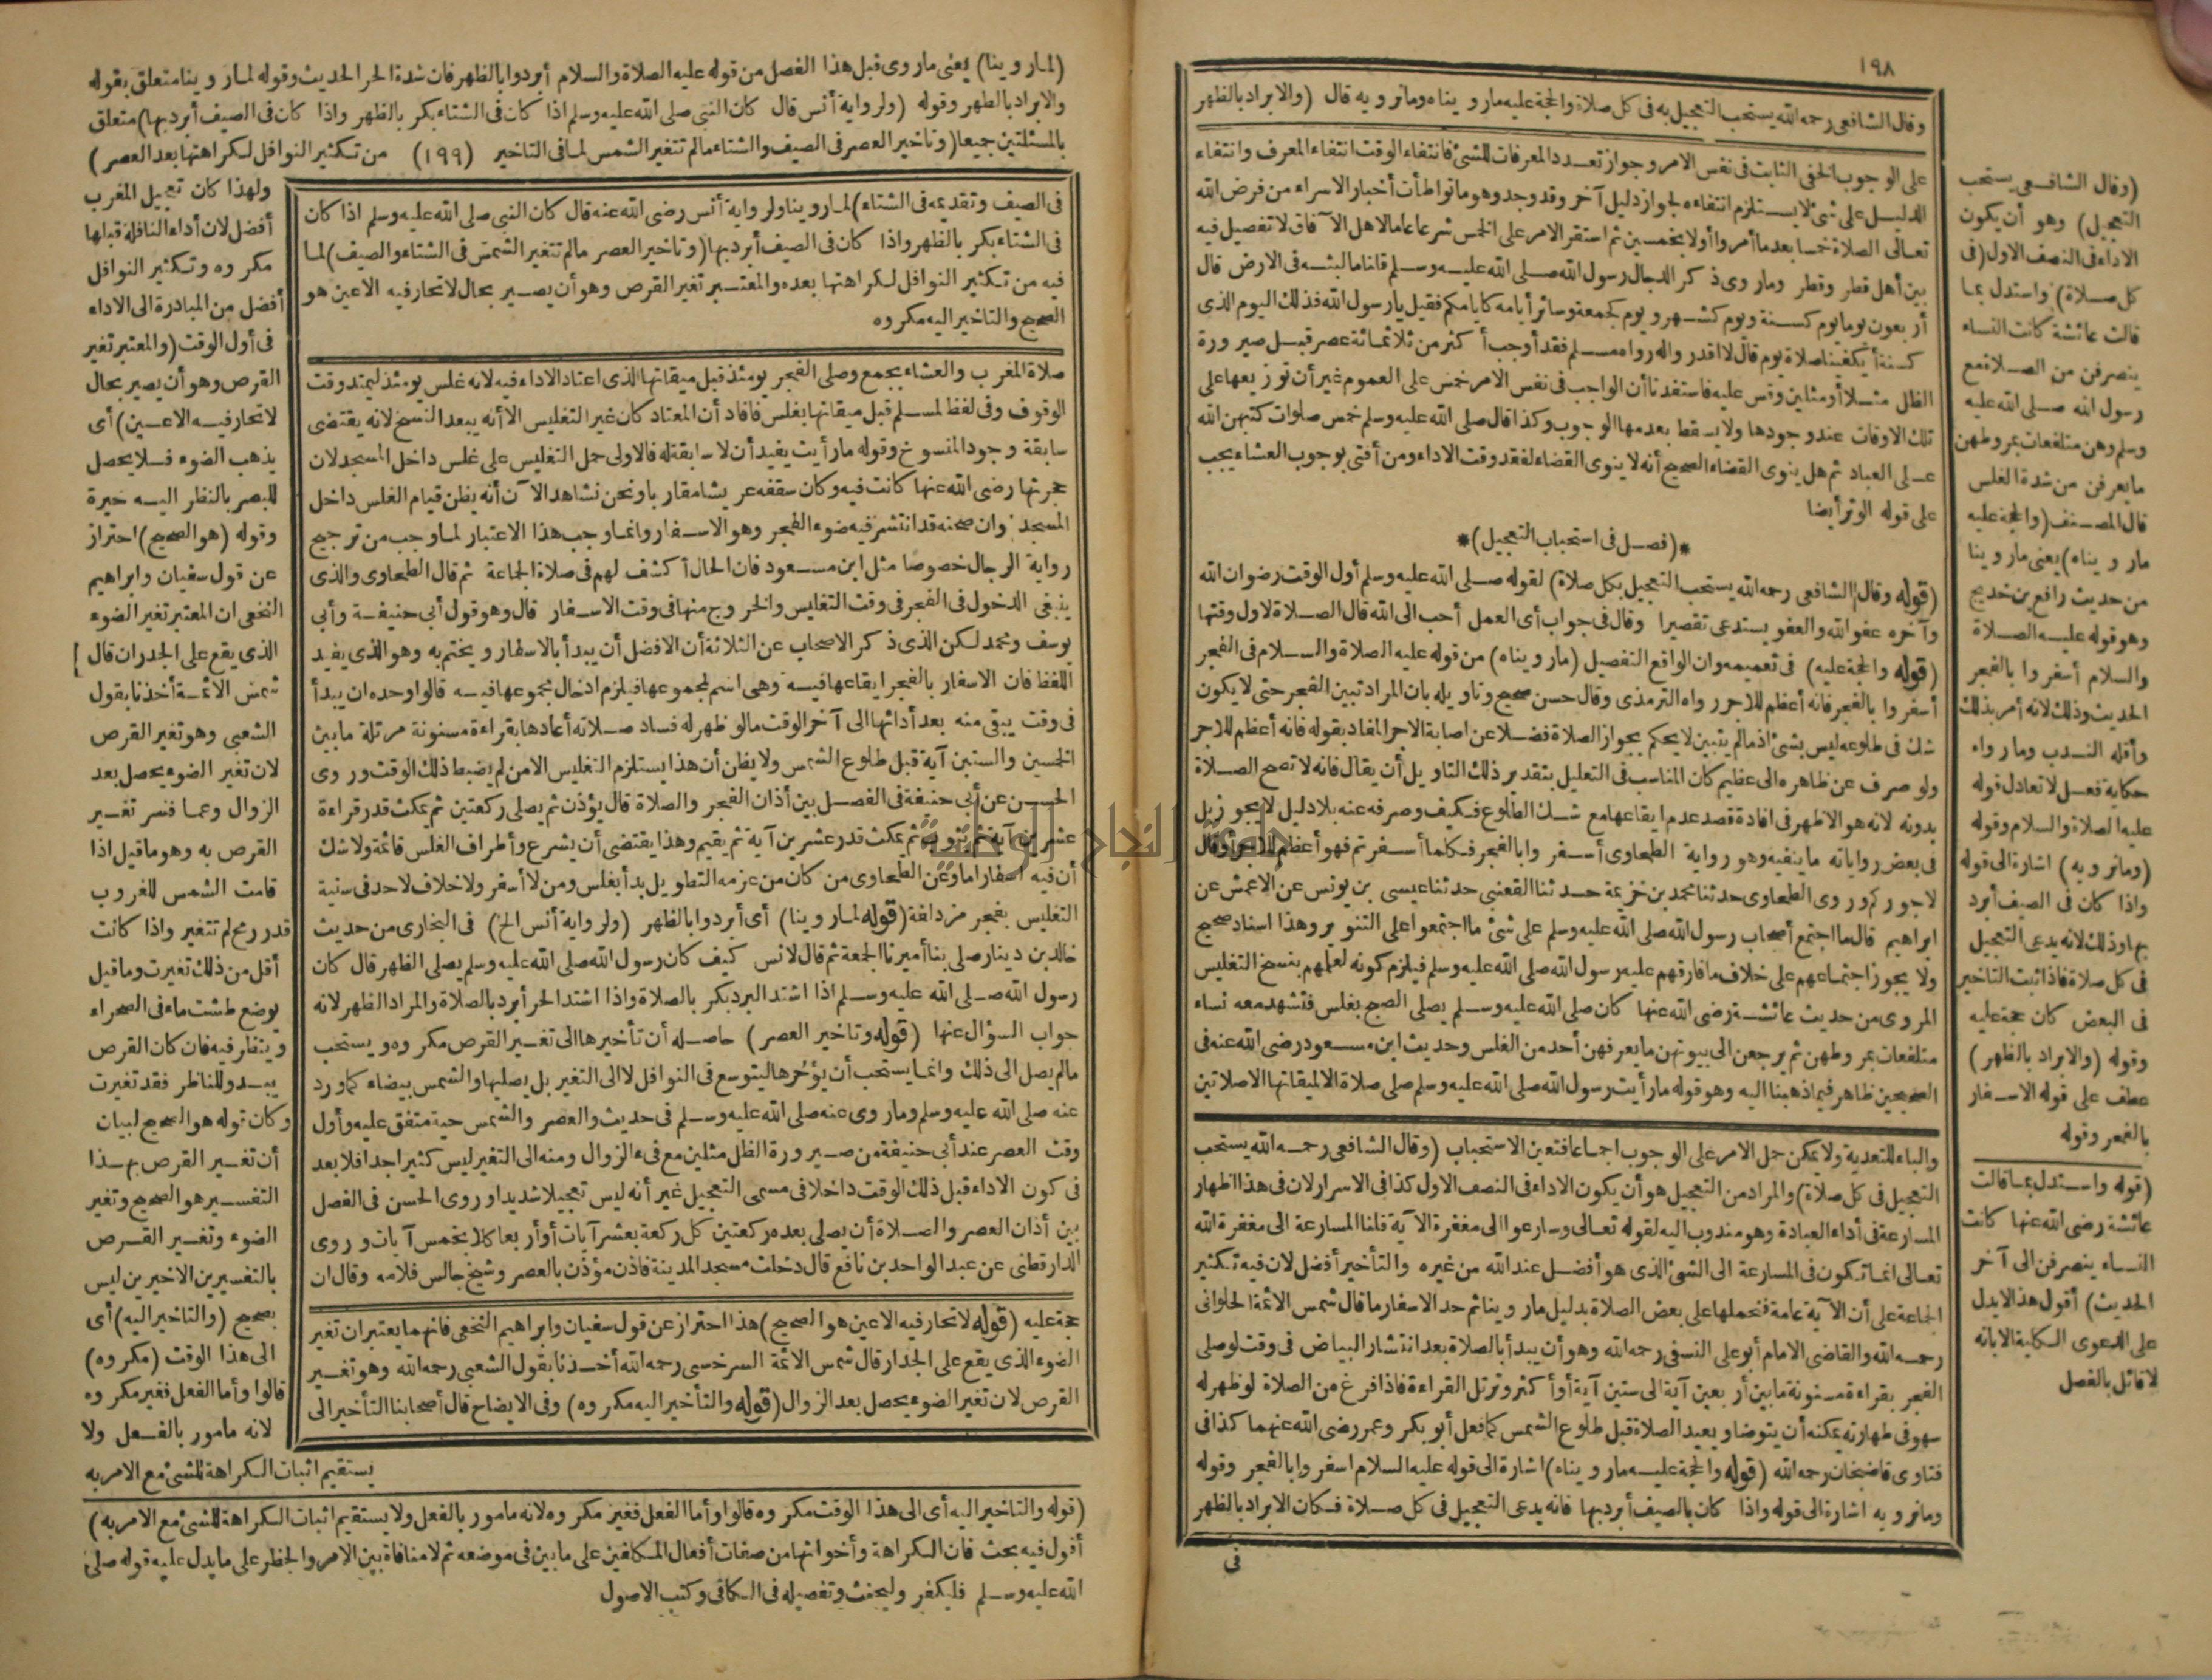 ١٩٨
وقال الشافعى رحمه الله يستحب التعجيل به فى كل صلاة والحجة عليه ما رويناه وما نرويه قال (والابراد بالظهر
على الوجوب الخفى الثابت فى نفس الامر وجواز تعدد المعرفات للشئ فانتفاء الوقت انتفاء المعرف وانتفاء
الدليل على شئ لا يستلزم انتفاءه لجواز دليل آخر وقد وجد وهو ما تواطأت أخبار الاسراء من فرض الله
تعالى الصلاة خمسا بعدما أمروا أولا بخمسين ثم استقر الامر على الخمس شرعا عاما لاهل الآفاق لا تفصيل فيه
بين أهل قطر وقطر وما روى ذكر الدجال رسول الله صلى الله عليه وسلم قلنا ما لبثه فى الارض قال
أربعون يوما يوم كسنة ويوم كشهر ويوم كجمعة وسائر أيامه كايامكم فقيل يا رسول الله فذلك اليوم الذى
كسنة أيكفينا صلاة يوم قال لا اقدروا له رواه مسلم فقد أوجب أكثر من ثلاثمائة عصر قبل صيرورة
الظل مثلا أو مثلين وقس عليه فاستفدنا أن الواجب فى نفس الامر خمس على العموم غير أن توزيعها على
تلك الاوقات عند وجودها ولا يسقط بعدمها الوجوب وكذا قال صلى الله عليه وسلم خمس صلوات كتبهن الله
على العباد ثم هل ينوى القضاء الصحيح أنه لا ينوى القضاء لفقد وقت الاداء ومن أفتى بوجوب العشاء يجب
على قوله الوتر أيضا
*(فصل فى استحباب التعجيل)*
(قوله وقال الشافعى رحمه الله يستحب التعجيل بكل صلاة) لقوله صلى الله عليه وسلم أول الوقت رضوان الله
وآخره عفو الله والعفو يستدعى تقصيرا وقال فى جواب أى العمل أحب الى الله قال الصلاة لاول وقتها
(قوله والحجة عليه) فى تعميمه وان الواقع التفصيل (ما رويناه) من قوله عليه الصلاة والسلام فى الفجر
أسفروا بالفجر فانه أعظم للاجر رواه الترمذى وقال حسن صحيح وتاويله بان المراد تبين الفجر حتى لا يكون
شك فى طلوعه ليس بشئ اذ ما لم يتبين لا يحكم بجواز الصلاة فضلا عن اصابة الاجر المفاد بقوله فانه أعظم للاجر
ولو صرف عن ظاهره الى عظيم كان المناسب فى التعليل بتقدير ذلك التاويل أن يقال فانه لا تصح الصلاة
بدونه لانه هو الاظهر فى افادة قصد عدم ايقاعها مع شك الطلوع فكيف وصرفه عنه بلا دليل لا يجوز بل
فى بعض رواياته ما ينفيه وهو رواية الطحاوى أسفروا بالفجر فكلما أسفرتم فهو أعظم للاجر أو قال
لاجوركم وروى الطحاوى حدثنا محمد بن خزيمة حدثنا القعنبى حدثنا عيسى بن يونس عن الاعمش عن
ابراهيم قال ما اجتمع أصحاب رسول الله صلى الله عليه وسلم على شئ ما اجتمعوا على التنوير وهذا اسناد صحيح
ولا يجوز اجتماعهم على خلاف ما فارقهم عليه رسول الله صلى الله عليه وسلم فيلزم كونه لعلمهم بنسخ التغليس
المروى من حديث عائشة رضى الله عنها كان صلى الله عليه وسلم يصلى الصبح بغلس فتشهد معه نساء
متلفعات بمروطهن ثم يرجعن الى بيوتهن ما يعرفهن أحد من الغلس وحديث ابن مسعود رضى الله عنه فى
الصحيحين ظاهر فيما ذهبنا اليه وهو قوله ما رأيت رسول الله صلى الله عليه وسلم صلى صلاة الا لميقاتها الا صلاتين
والباء للتعدية ولا يمكن حمل الامر على الوجوب اجماعا فتعين الاستحباب (وقال الشافعى رحمه الله يستحب
التعجيل فى كل صلاة) والمراد من التعجيل هو أن يكون الاداء فى النصف الاول كذا فى الاسرار لان فى هذا اظهار
المسارعة فى أداء العبادة وهو مندوب اليه لقوله تعالى وسارعوا الى مغفرة الآية قلنا المسارعة الى مغفرة الله
تعالى انما تكون فى المسارعة الى الشئ الذى هو أفضل عند الله من غيره والتأخير أفضل لان فيه تكثير
الجماعة على أن الآية عامة فنحملها على بعض الصلاة بدليل ما روينا ثم حد الاسفار ما قال شمس الائمة الحلوانى
رحمه الله والقاضى الامام أبو على النسفى رحمه الله وهو أن يبدأ بالصلاة بعد انتشار البياض فى وقت لو صلى
الفجر بقراءة مسنونة ما بين أربعين آية الى ستين آية أو أكثر وترتل القراءة فاذا فرغ من الصلاة لو ظهر له
سهو فى طهارته يمكنه أن يتوضا ويعيد الصلاة قبل طلوع الشمس كما فعل أبو بكر وعمر رضى الله عنهما كذا فى
فتاوى قاضيخان رحمه الله (قوله والحجة عليه ما رويناه) اشارة الى قوله عليه السلام اسفروا بالفجر وقوله
وما نرويه اشارة الى قوله واذا كان بالصيف أبرد بها فانه يدعى التعجيل فى كل صلاة فكان الابراد بالظهر
فى
(وقال الشافعى يستحب
التعجيل) وهو أن يكون
الاداء فى النصف الاول (فى
كل صلاة) واستدل بما
قالت عائشة كانت النساء
ينصرفن من الصلاة مع
رسول الله صلى الله عليه
وسلم وهن متلفعات بمروطهن
ما يعرفن من شدة الغلس
قال المصنف (والحجة عليه
ما رويناه) يعنى ما روينا
من حديث رافع بن خديج
وهو قوله عليه الصلاة
والسلام أسفروا بالفجر
الحديث وذلك لانه أمر بذلك
وأقله الندب وما رواه
حكاية فعل لا تعادل قوله
عليه الصلاة والسلام وقوله
(وما نرويه) اشارة الى قوله
واذا كان فى الصيف أبرد
بها وذلك لانه يدعى التعجيل
فى كل صلاة فاذا ثبت التاخير
فى البعض كان حجة عليه
وقوله (والابراد بالظهر)
عطف على قوله الاسفار
بالفجر وقوله
(قوله واستدل بما قالت
عائشة رضى الله عنها كانت
النساء ينصرفن الى آخر
الحديث) أقول هذا لا يدل
على الدعوى الكلية الا بانه
لا قائل بالفصل
(لما روينا) يعنى ما روى قبل هذا الفصل من قوله عليه الصلاة والسلام أبردوا بالظهر فان شدة الحر الحديث وقوله لما روينا متعلق بقوله
والابراد بالظهر وقوله (ولرواية أنس قال كان النبى صلى الله عليه وسلم اذا كان فى الشتاء بكر بالظهر واذا كان فى الصيف أبرد بها) متعلق
بالمسئلتين جميعا (وتاخير العصر فى الصيف والشتاء ما لم تتغير الشمس لما فى التاخير (١٩٩) من تكثير النوافل لكراهتها بعد العصر)
فى الصيف وتقديمه فى الشتاء) لما روينا ولرواية أنس رضى الله عنه قال كان النبى صلى الله عليه وسلم اذا كان
فى الشتاء بكر بالظهر واذا كان فى الصيف أبرد بها (وتاخير العصر ما لم تتغير الشمس فى الشتاء والصيف) لما
فيه من تكثير النوافل لكراهتها بعده والمعتبر تغير القرص وهو أن يصير بحال لا تحار فيه الاعين هو
الصحيح والتاخير اليه مكروه
صلاة المغرب والعشاء بجمع وصلى الفجر يومئذ قبل ميقاتها الذى اعتاد الاداء فيه لانه غلس يومئذ ليمتد وقت
الوقوف وفى لفظ لمسلم قبل ميقاتها بغلس فافاد أن المعتاد كان غير التغليس الا أنه يبعد النسخ لانه يقتضى
سابقة وجود المنسوخ وقوله ما رأيت يفيد أن لا سابقة له فالاولى حمل التغليس على غلس داخل المسجد لان
حجرتها رضى الله عنها كانت فيه وكان سقفه عريشا مقاربا ونحن نشاهد الآن أنه يظن قيام الغلس داخل
المسجد وان صحنه قد انتشر فيه ضوء الفجر وهو الاسفار وانما وجب هذا الاعتبار لما وجب من ترجيح
رواية الرجال خصوصا مثل ابن مسعود فان الحال أكشف لهم فى صلاة الجماعة ثم قال الطحاوى والذى
ينبغى الدخول فى الفجر فى وقت التغليس والخروج منها فى وقت الاسفار قال وهو قول أبى حنيفة وأبى
يوسف ومحمد لكن الذى ذكر الاصحاب عن الثلاثة أن الافضل أن يبدأ بالاسفار ويختم به وهو الذى يفيد
اللفظ فان الاسفار بالفجر ايقاعها فيه وهى اسم لمجموعها فيلزم ادخال مجموعها فيه قالوا وحده ان يبدأ
فى وقت يبقى منه بعد أدائها الى آخر الوقت ما لو ظهر له فساد صلاته أعادها بقراءة مسنونة مرتلة ما بين
الخمسين والستين آية قبل طلوع الشمس ولا يظن أن هذا يستلزم التغليس الا من لم يضبط ذلك الوقت وروى
الحسن عن أبى حنيفة فى الفصل بين أذان الفجر والصلاة قال يؤذن ثم يصلى ركعتين ثم يمكث قدر قراءة
عشرين آية ثم يثوب ثم يمكث قدر عشرين آية ثم يقيم وهذا يقتضى أن يشرع وأطراف الغلس قائمة ولا شك
أن فيه اسفارا ما وعن الطحاوى من كان من عزمه التطويل بدأ بغلس ومن لا أسفر ولا خلاف لاحد فى سنية
التغليس بفجر مزدلفة (قوله لما روينا) أى أبردوا بالظهر (ولرواية أنس الخ) فى البخارى من حديث
خالد بن دينار صلى بنا أميرنا الجمعة ثم قال لانس كيف كان رسول الله صلى الله عليه وسلم يصلى الظهر قال كان
رسول الله صلى الله عليه وسلم اذا اشتد البرد بكر بالصلاة واذا اشتد الحر أبرد بالصلاة والمراد الظهر لانه
جواب السؤال عنها (قوله وتاخير العصر) حاصله أن تأخيرها الى تغير القرص مكروه ويستحب
ما لم يصل الى ذلك وانما يستحب أن يؤخرها ليتوسع فى النوافل لا الى التغير بل يصليها والشمس بيضاء كما ورد
عنه صلى الله عليه وسلم وما روى عنه صلى الله عليه وسلم فى حديث والعصر والشمس حية متفق عليه وأول
وقت العصر عند أبى حنيفة من صيرورة الظل مثلين مع فىء الزوال ومنه الى التغير ليس كثيرا جدا فلا بعد
فى كون الاداء قبل ذلك الوقت داخلا فى مسمى التعجيل غير أنه ليس تعجيلا شديدا وروى الحسن فى الفصل
بين أذان العصر والصلاة أن يصلى بعده ركعتين كل ركعة بعشر آيات أو أربعا كلا بخمس آيات وروى
الدارقطنى عن عبد الواحد بن نافع قال دخلت مسجد المدينة فاذن مؤذن بالعصر وشيخ جالس فلامه وقال ان
حجة عليه (قوله لا تحار فيه الاعين هو الصحيح) هذا احتراز عن قول سفيان وابراهيم النخعى فانهما يعتبران تغير
الضوء الذى يقع على الجدار قال شمس الائمة السرخسى رحمه الله أخذنا بقول الشعبى رحمه الله وهو تغير
القرص لان تغير الضوء يحصل بعد الزوال (قوله والتأخير اليه مكروه) وفى الايضاح قال أصحابنا التأخير الى
ولهذا كان تعجيل المغرب
أفضل لان أداء النافلة قبلها
مكروه وتكثير النوافل
أفضل من المبادرة الى الاداء
فى أول الوقت (والمعتبر تغير
القرص وهو أن يصير بحال
لا تحار فيه الاعين) أى
يذهب الضوء فلا يحصل
للبصر بالنظر اليه حيرة
وقوله (هو الصحيح) احتراز
عن قول سفيان وابراهيم
النخعى ان المعتبر تغير الضوء
الذى يقع على الجدران قال
شمس الائمة أخذنا بقول
الشعبى وهو تغير القرص
لان تغير الضوء يحصل بعد
الزوال وعما فسر تغير
القرص به وهو ما قيل اذا
قامت الشمس للغروب
قدر رمح لم تتغير واذا كانت
أقل من ذلك تغيرت وما قيل
يوضع طشت ماء فى الصحراء
وينظر فيه فان كان القرص
يبدو للناظر فقد تغيرت
وكان قوله هو الصحيح لبيان
أن تغير القرص بهذا
التفسير هو الصحيح وتغير
الضوء وتغير القرص
بالتفسيرين الاخيرين ليس
بصحيح (والتاخير اليه) أى
الى هذا الوقت (مكروه)
قالوا وأما الفعل فغير مكروه
لانه مامور بالفعل ولا
يستقيم اثبات الكراهة للشئ مع الامر به
(قوله والتاخير اليه أى الى هذا الوقت مكروه قالوا وأما الفعل فغير مكروه لانه مامور بالفعل ولا يستقيم اثبات الكراهة للشئ مع الامر به)
أقول فيه بحث فان الكراهة وأخواتها من صفات أفعال المكلفين على ما بين فى موضعه ثم لا منافاة بين الامر والحظر على ما يدل عليه قوله صلى
الله عليه وسلم فليكفر وليحنث وتفصيله فى الكافى وكتب الاصول